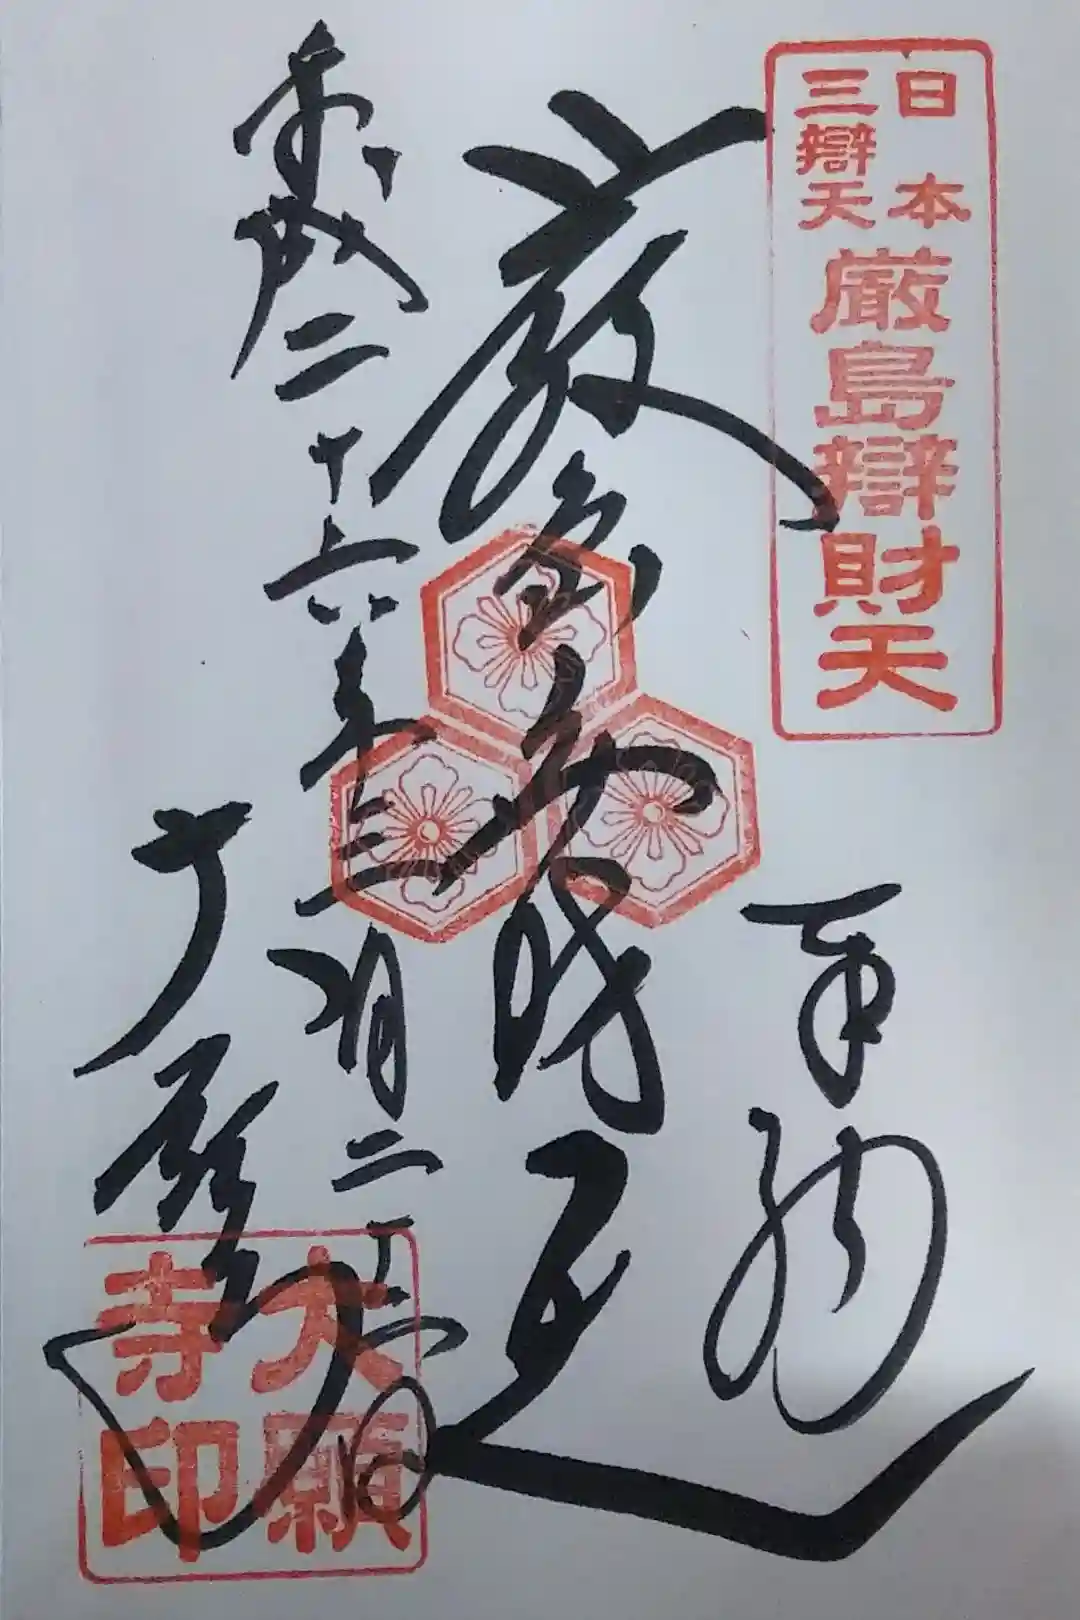 日本
三辯天
厳島辯財天
奉拝
厳島弁財天
平成二十六年三月二十六日
大願寺
大願
寺印